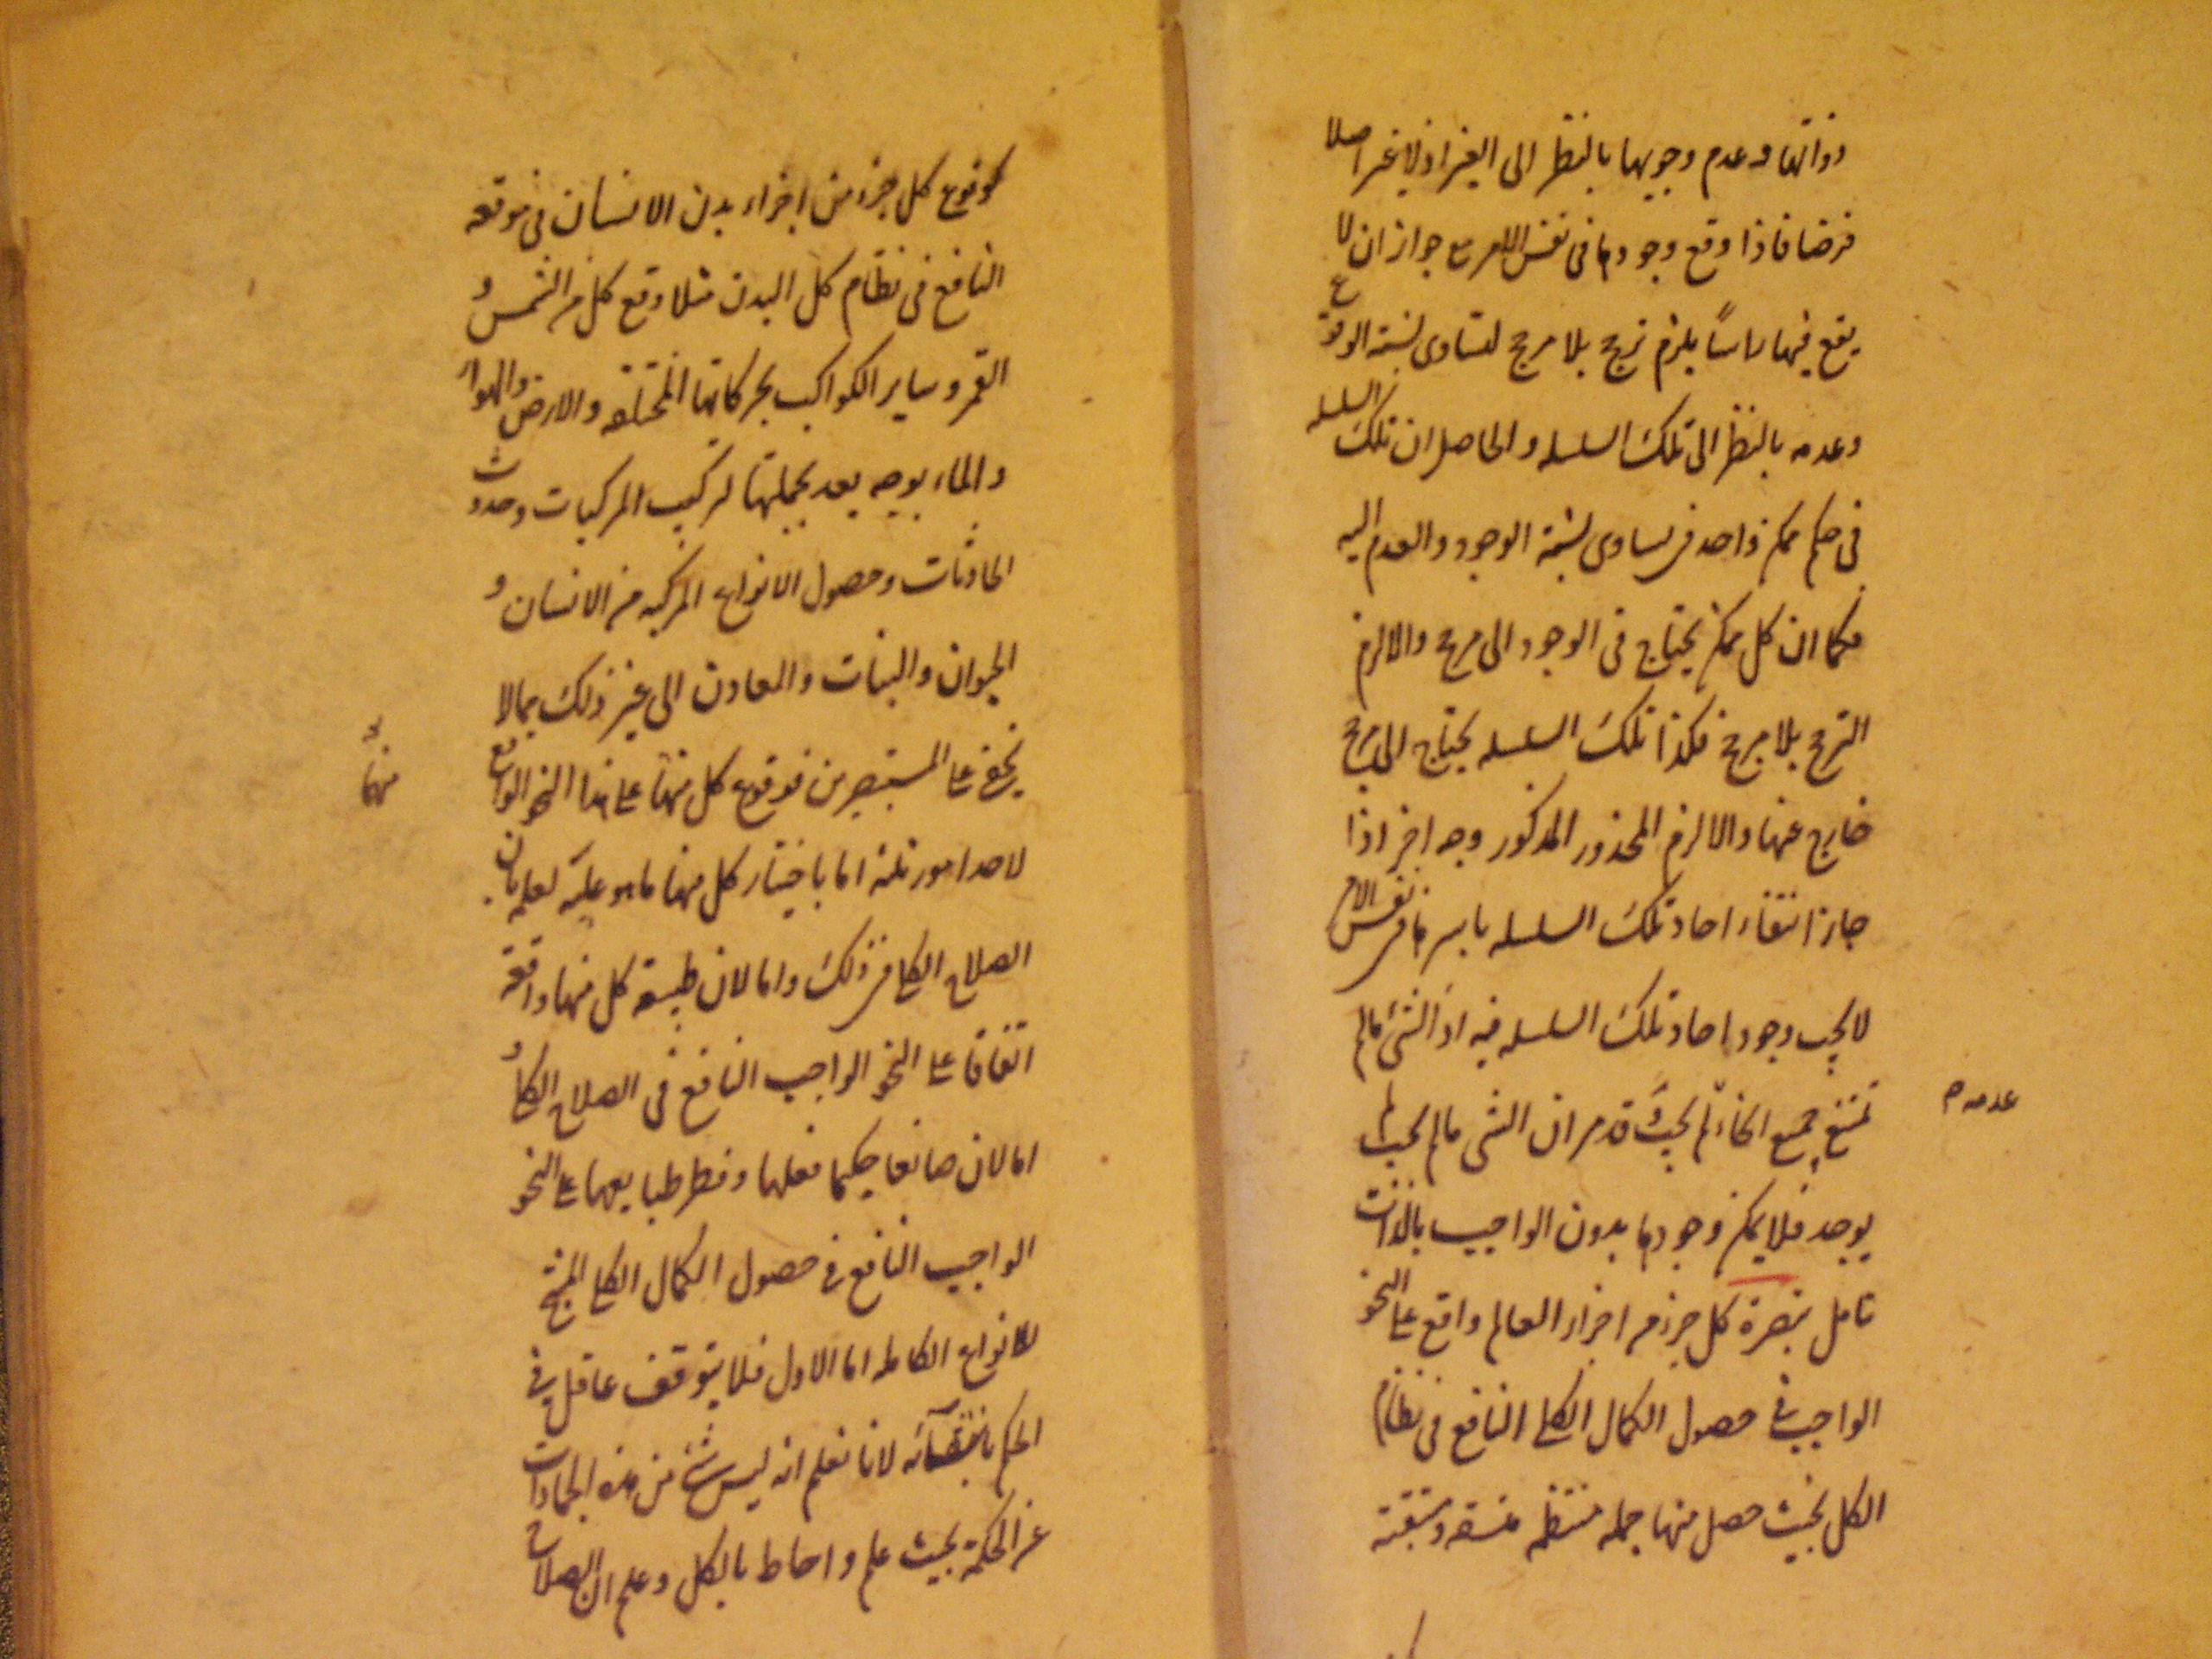 ذواتها و عدم وجوبها بالنظر الى الغير اذ لا غير اصلا
فرضا فاذا وقع وجودها فى نفس الامر مع جواز ان لا
يقع فيها راسًا يلزم ترجح بلا مرجح لتساوى نسبة الوقوع
وعدمه بالنظر الى تلك السلسله والحاصل ان تلك السلسله
فى حكم ممكن واحد فى تساوى نسبة الوجود والعدم اليه
فكما ان كل ممكن يحتاج فى الوجود الى مرجح والا لزم
الترجح بلا مرجح فكذا تلك السلسله يحتاج الى مرجح
خارج عنها والا لزم المحذور المذكور وجه اخر اذا
جاز انتفاء احاد تلك السلسله باسرها فى نفس الامر
لا يجب وجود احاد تلك السلسله فيه اذ الشئ مالم
يمتنع جميع انحاء لم يجب و قد مر ان الشى مالم يجب لم
عدمه
يوجد فلا يمكن وجودها بدون الواجب بالذات
تامل تبصرة كل جزء من اجزاء العالم واقع على النحو
الواجب فى حصول الكمال الكلى النافع فى نظام
الكل بحيث حصل منها جمله منتظمه متسقه
كوقوع كل جزء من اجزاء بدن الانسان فى موقعه
النافع فى نظام كل البدن مثلا وقع كل من الشمس و
القمر و ساير الكواكب بحركاتها المختلفه والارض والهواء
والماء بوجه يعد بجملتها لتركيب المركبات وحدوث
الحادثات وحصول الانواع المركبه من الانسان و
الحيوان والنبات والمعادن الى غير ذلك مما لا
يخفى على المستبصرين فوقوع كل منها على هذا النحو الواقع
منها
لاحد امور ثلثه اما باختيار كل منها ما هو عليه لعلمه بان
الصلاح الكلى فى ذلك واما لان طبيعة كل منها واقعة
اتفاقا على النحو الواجب النافع فى الصلاح الكلى و
اما لان صانعا حكيما فعلها وفطر طبايعها على النحو
الواجب النافع فى حصول الكمال الكلى
للانواع الكامله اما الاول فلا يتوقف عاقل فى
الحكم بانتفائه لانا نعلم انه ليس شئ من هذه الجمادات
من الحكمة بحيث علم و احاط بالكل و علم ان الصلاح